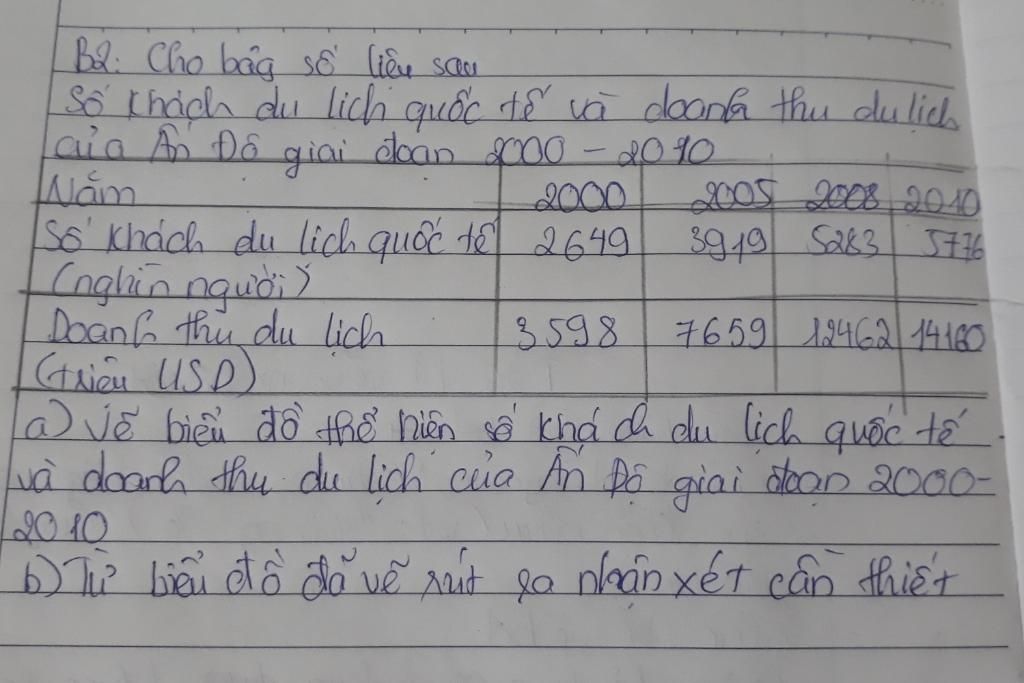 B2: Cho bảg số liệu sau
Số khách du lịch quốc tế và doanh thu du lịch
của Ấn Độ giai đoạn 2000 - 2010
Năm 2000 2005 2008 2010
Số khách du lịch quốc tế 2649 3919 5283 5776
(nghìn người)
Doanh thu du lịch 3598 7659 12462 14160
(triệu USD)
a) Vẽ biểu đồ thể hiện số khách du lịch quốc tế
và doanh thu du lịch của Ấn Độ giai đoạn 2000-
2010
b) Từ biểu đồ đã vẽ rút ra nhận xét cần thiết